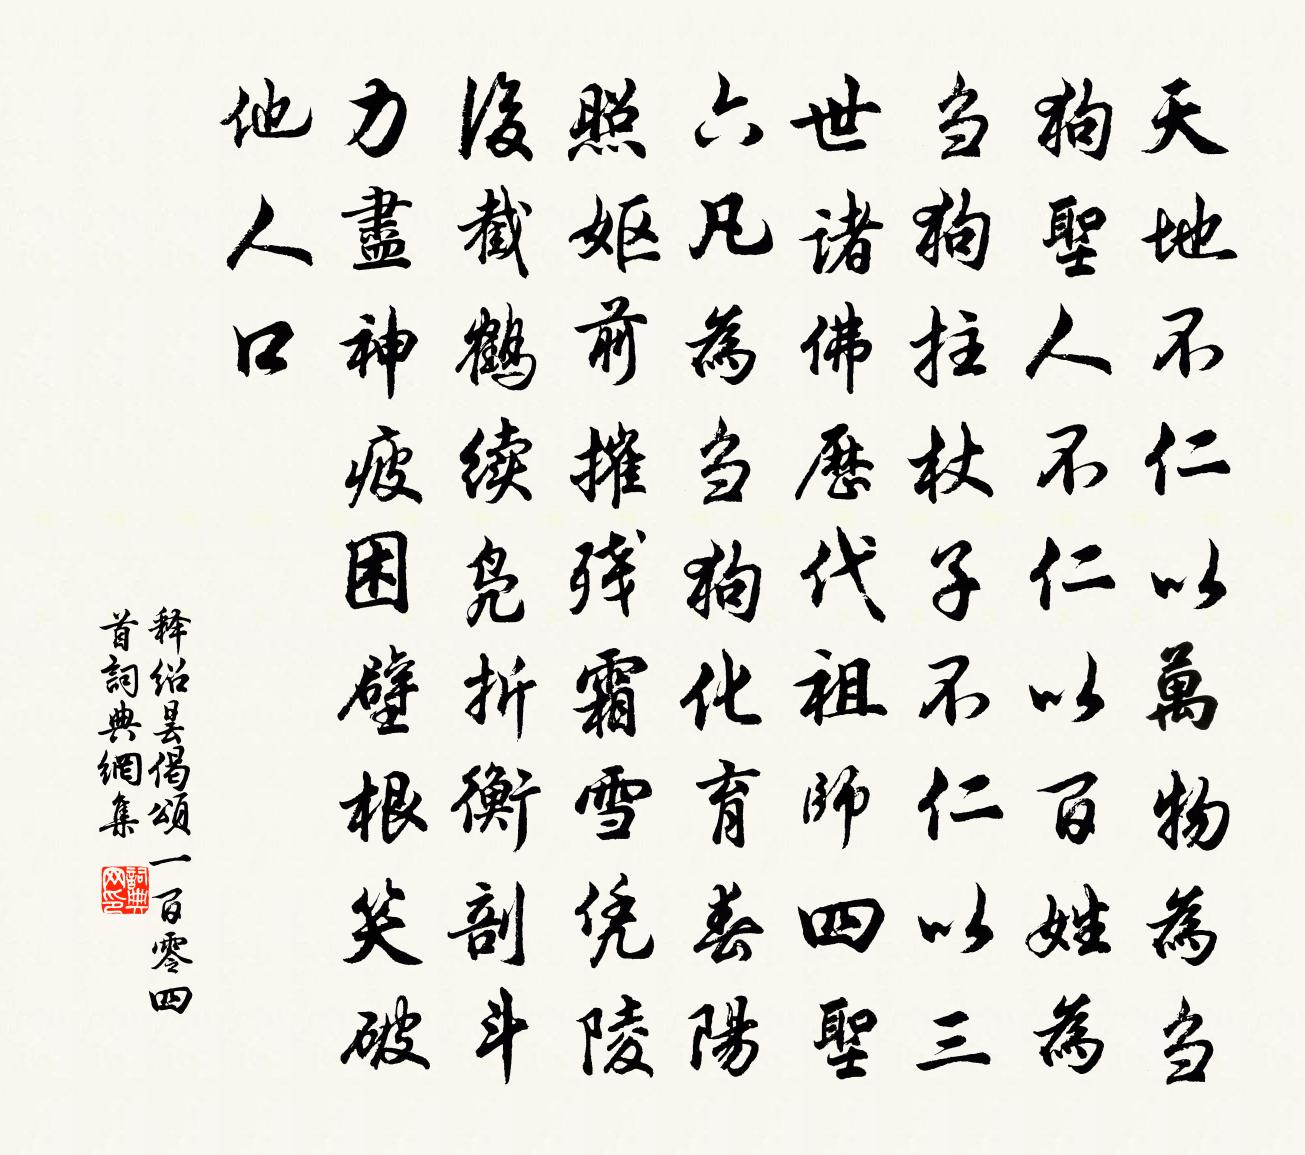 天地不仁以萬物為刍
狗聖人不仁以百姓為
刍狗拄杖子不仁以三
世诸佛歷代祖師四聖
六凡為刍狗化育春陽
照妪前摧残霜雪凭陵
後截鶴续凫折衡剖斗
力盡神疲困壁根笑破
他人口
释绍昙偈頌一百零四
首詞典網集
詞典
网印